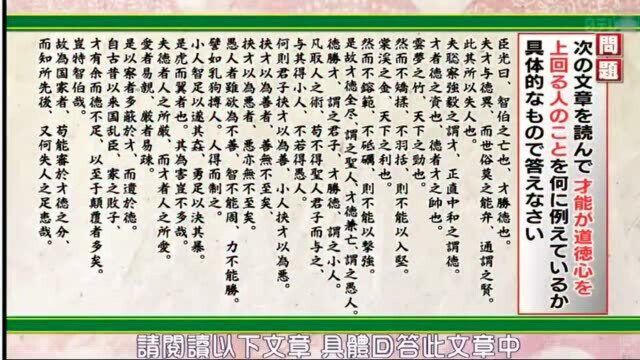 問題
次の文章を読んで 才能が道徳心を
上回る人のことを何に例えているか
具体的なもので答えなさい
臣光曰、智伯之亡也、才勝徳也。
夫才与徳異、而世俗莫之能弁、通謂之賢。
此其所以失人也。
夫聡察強毅之謂才、正直中和之謂徳。
才者徳之資也、徳者才之帥也。
雲夢之竹、天下之勁也。
然而不矯揉、不羽括、則不能以入堅。
棠渓之金、天下之利也。
然而不鎔範、不砥礪、則不能以撃強。
是故才徳全尽、謂之聖人、才徳兼亡、謂之愚人。
徳勝才、謂之君子、才勝徳、謂之小人。
凡取人之術、苟不得聖人君子而与之、
与其得小人、不若得愚人。
何則君子挟才以為善、小人挟才以為悪。
挟才以為善者、善無不至矣。
挟才以為悪者、悪亦無不至矣。
愚人者雖欲為不善、智不能周、力不能勝。
譬如乳狗搏人。人得而制之。
小人智足以遂其姦、勇足以決其暴。
是虎而翼者也。其為害豈不多哉。
夫徳者人之所厳、而才者人之所愛。
愛者易親、厳者易疎。
是以察者多蔽於才、而遺於徳。
自古昔以来国乱臣、家之敗子、
才有余而徳不足、以至于顛覆者多矣。
豈特智伯哉。
故為国家者、苟能審於才徳之分、
而知所先後、又何失人之足患哉。
請閱讀以下文章 具體回答此文章中